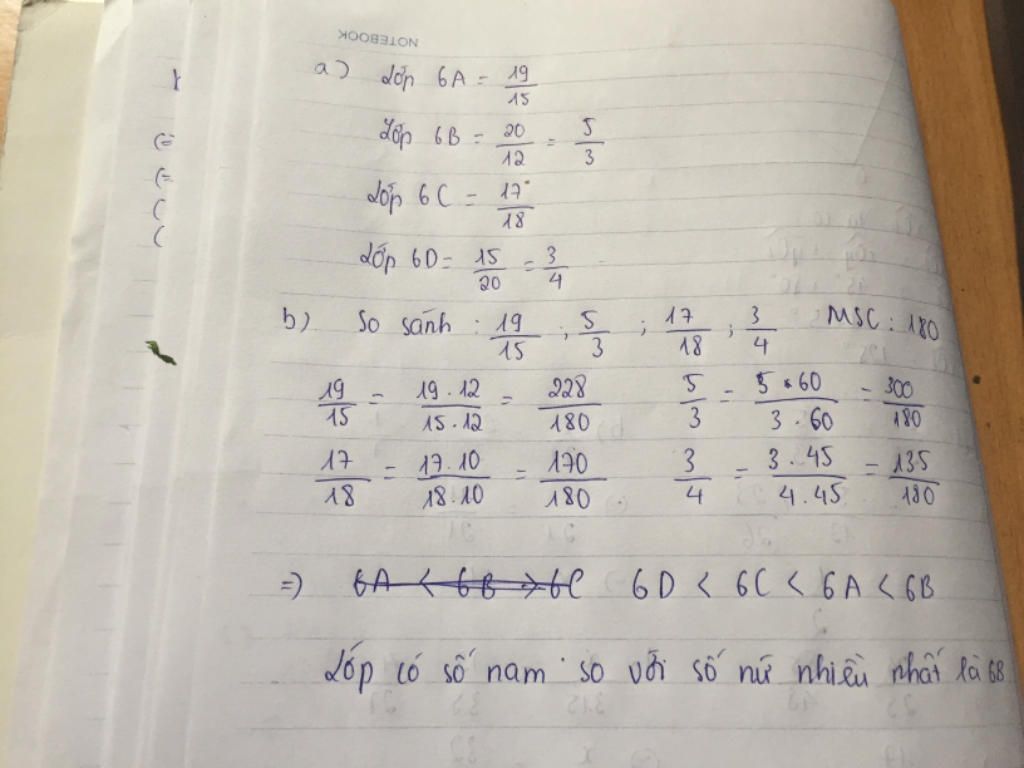 NOTEBOOK
a) Lớp 6A = 19/15
Lớp 6B = 20/12 = 5/3
Lớp 6C = 17/18
Lớp 6D = 15/20 = 3/4
b) So sánh : 19/15 ; 5/3 ; 17/18 ; 3/4 MSC : 180
19/15 = 19.12/15.12 = 228/180 5/3 = 5.60/3.60 = 300/180
17/18 = 17.10/18.10 = 170/180 3/4 = 3.45/4.45 = 135/180
=) 6A < 6B > 6C 6D < 6C < 6A < 6B
Lớp có số nam so với số nữ nhiều nhất là 6B